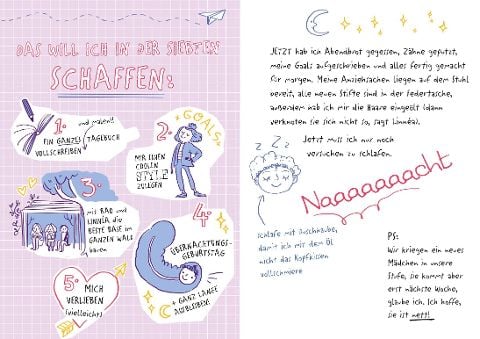 DAS WILL ICH IN DER SIEBTEN
SCHAFFEN:
1.
und malen!!
EIN GANZES TAGEBUCH
VOLLSCHREIBEN
2.
GOALS
MIR EINEN
COOLEN
STYLE
ZULEGEN
3.
MIT BAO UND
LINNÉA DIE
BESTE BASE IM
GANZEN WALD
BAUEN
4.
ÜBERNACHTUNGS-
GEBURTSTAG
+ GANZ LANGE
AUFBLEIBEN!
5.
MICH
VERLIEBEN
(vielleicht)
JETZT hab ich Abendbrot gegessen, Zähne geputzt,
meine Goals aufgeschrieben und alles fertig gemacht
für morgen. Meine Anziehsachen liegen auf dem Stuhl
bereit, alle neuen Stifte sind in der Federtasche,
außerdem hab ich mir die Haare eingeölt (dann
verknoten sie sich nicht so, sagt Linnéa).
Jetzt muss ich nur noch
versuchen zu schlafen.
Z Z Z
Naaaaaaaacht
Schlafe mit Duschhaube,
damit ich mir dem Öl
nicht das Kopfkissen
vollschmiere
PS:
Wir kriegen ein neues
Mädchen in unsere
Stufe, sie kommt aber
erst nächste Woche,
glaube ich. Ich hoffe,
sie ist nett!